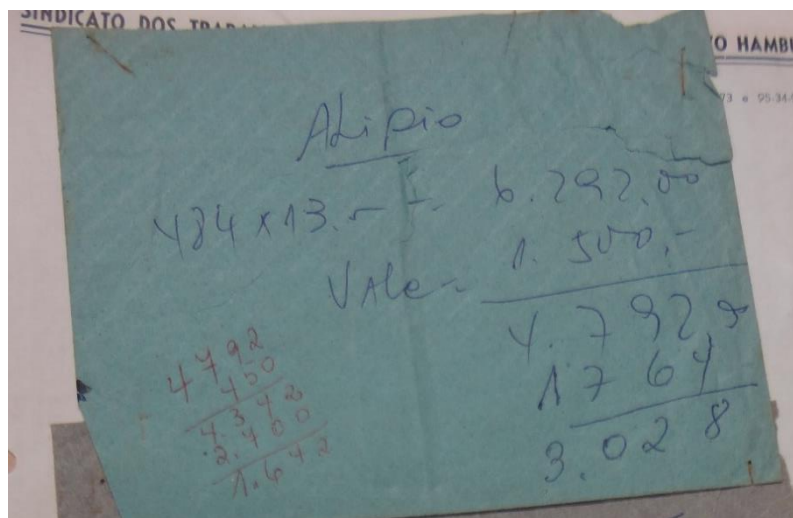 SINDICATO DOS TRABA
O HAMBU
73 e 95-34
ALipio
484 x 13.- = 6.292.00
Vale - 1.500,-
4.792,0
1764
3.028
4792
450
4.342
2.700
1.642